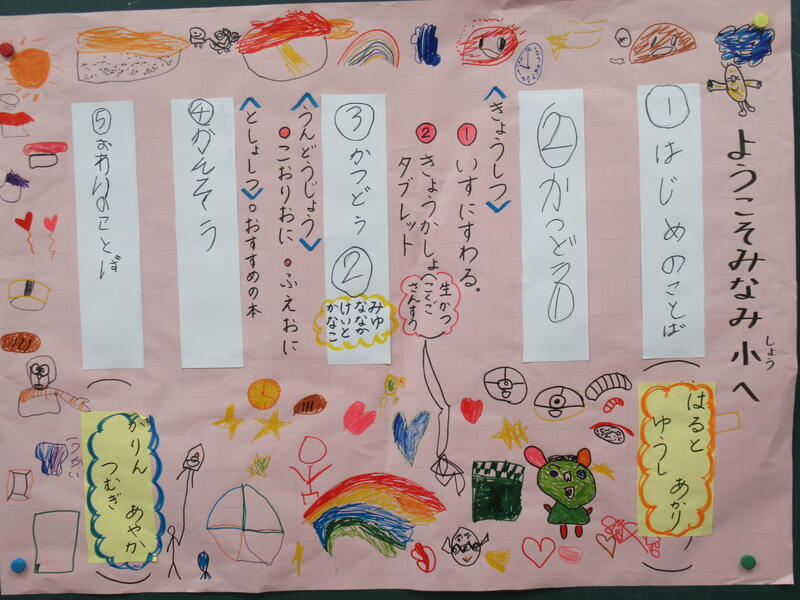 ようこそみなみ小へ
しょう
① はじめのことば
はると
ゆうし
あかり
② かつどう①
<きょうしつ>
① いすにすわる。
② きょうかしょ
タブレット
生かつ
こくご
さんすう
③ かつどう②
みゆ
ななか
けいと
かなこ
<うんどうじょう>
●こおりおに ●ふえおに
<としょしつ>。おすすめの本
④ かんそう
⑤ おわりのことば
かりん
つむぎ
あやか